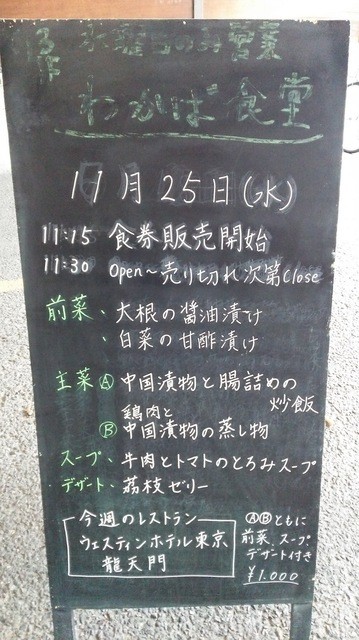 水曜日のみ営業
わかば食堂
11月25日(水)
11:15 食券販売開始
11:30 Open～売り切れ次第Close
前菜、大根の醤油漬け
、白菜の甘酢漬け
主菜Ⓐ中国漬物と腸詰めの
炒飯
鶏肉と
Ⓑ中国漬物の蒸し物
スープ、牛肉とトマトのとろみスープ
デザート、茘枝ゼリー
今週のレストラン
ウェスティンホテル東京
龍天門
ⒶⒷともに
前菜、スープ
デザート付き
¥1.000